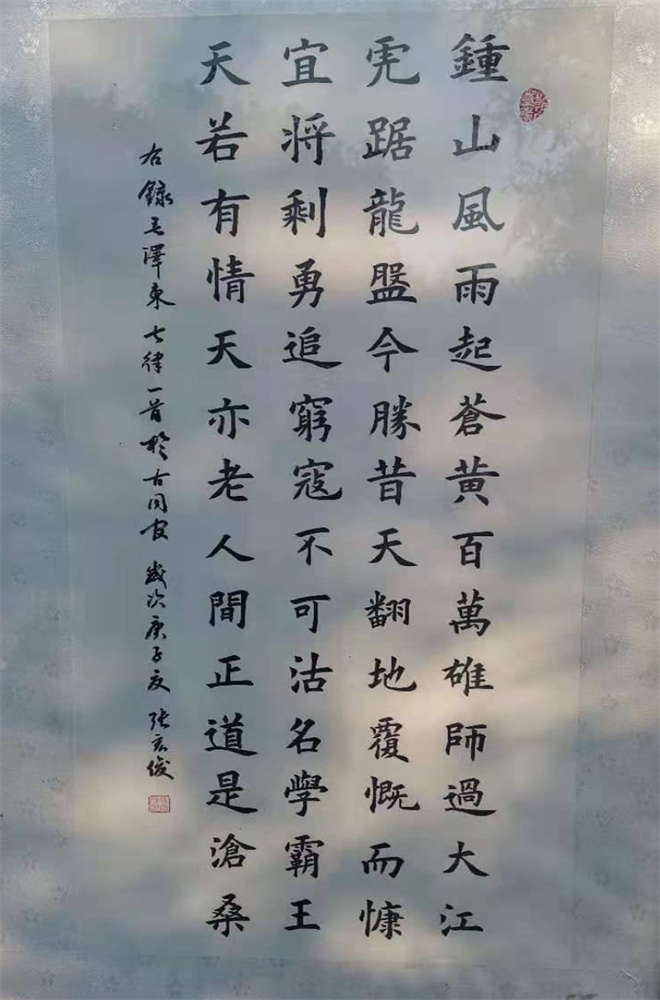 鍾山風雨起蒼黄百萬雄師過大江
虎踞龍盤今勝昔天翻地覆慨而慷
宜将剩勇追窮寇不可沽名學霸王
天若有情天亦老人間正道是滄桑
右録毛澤東七律一首於古同官歲次庚子夏張宏俊